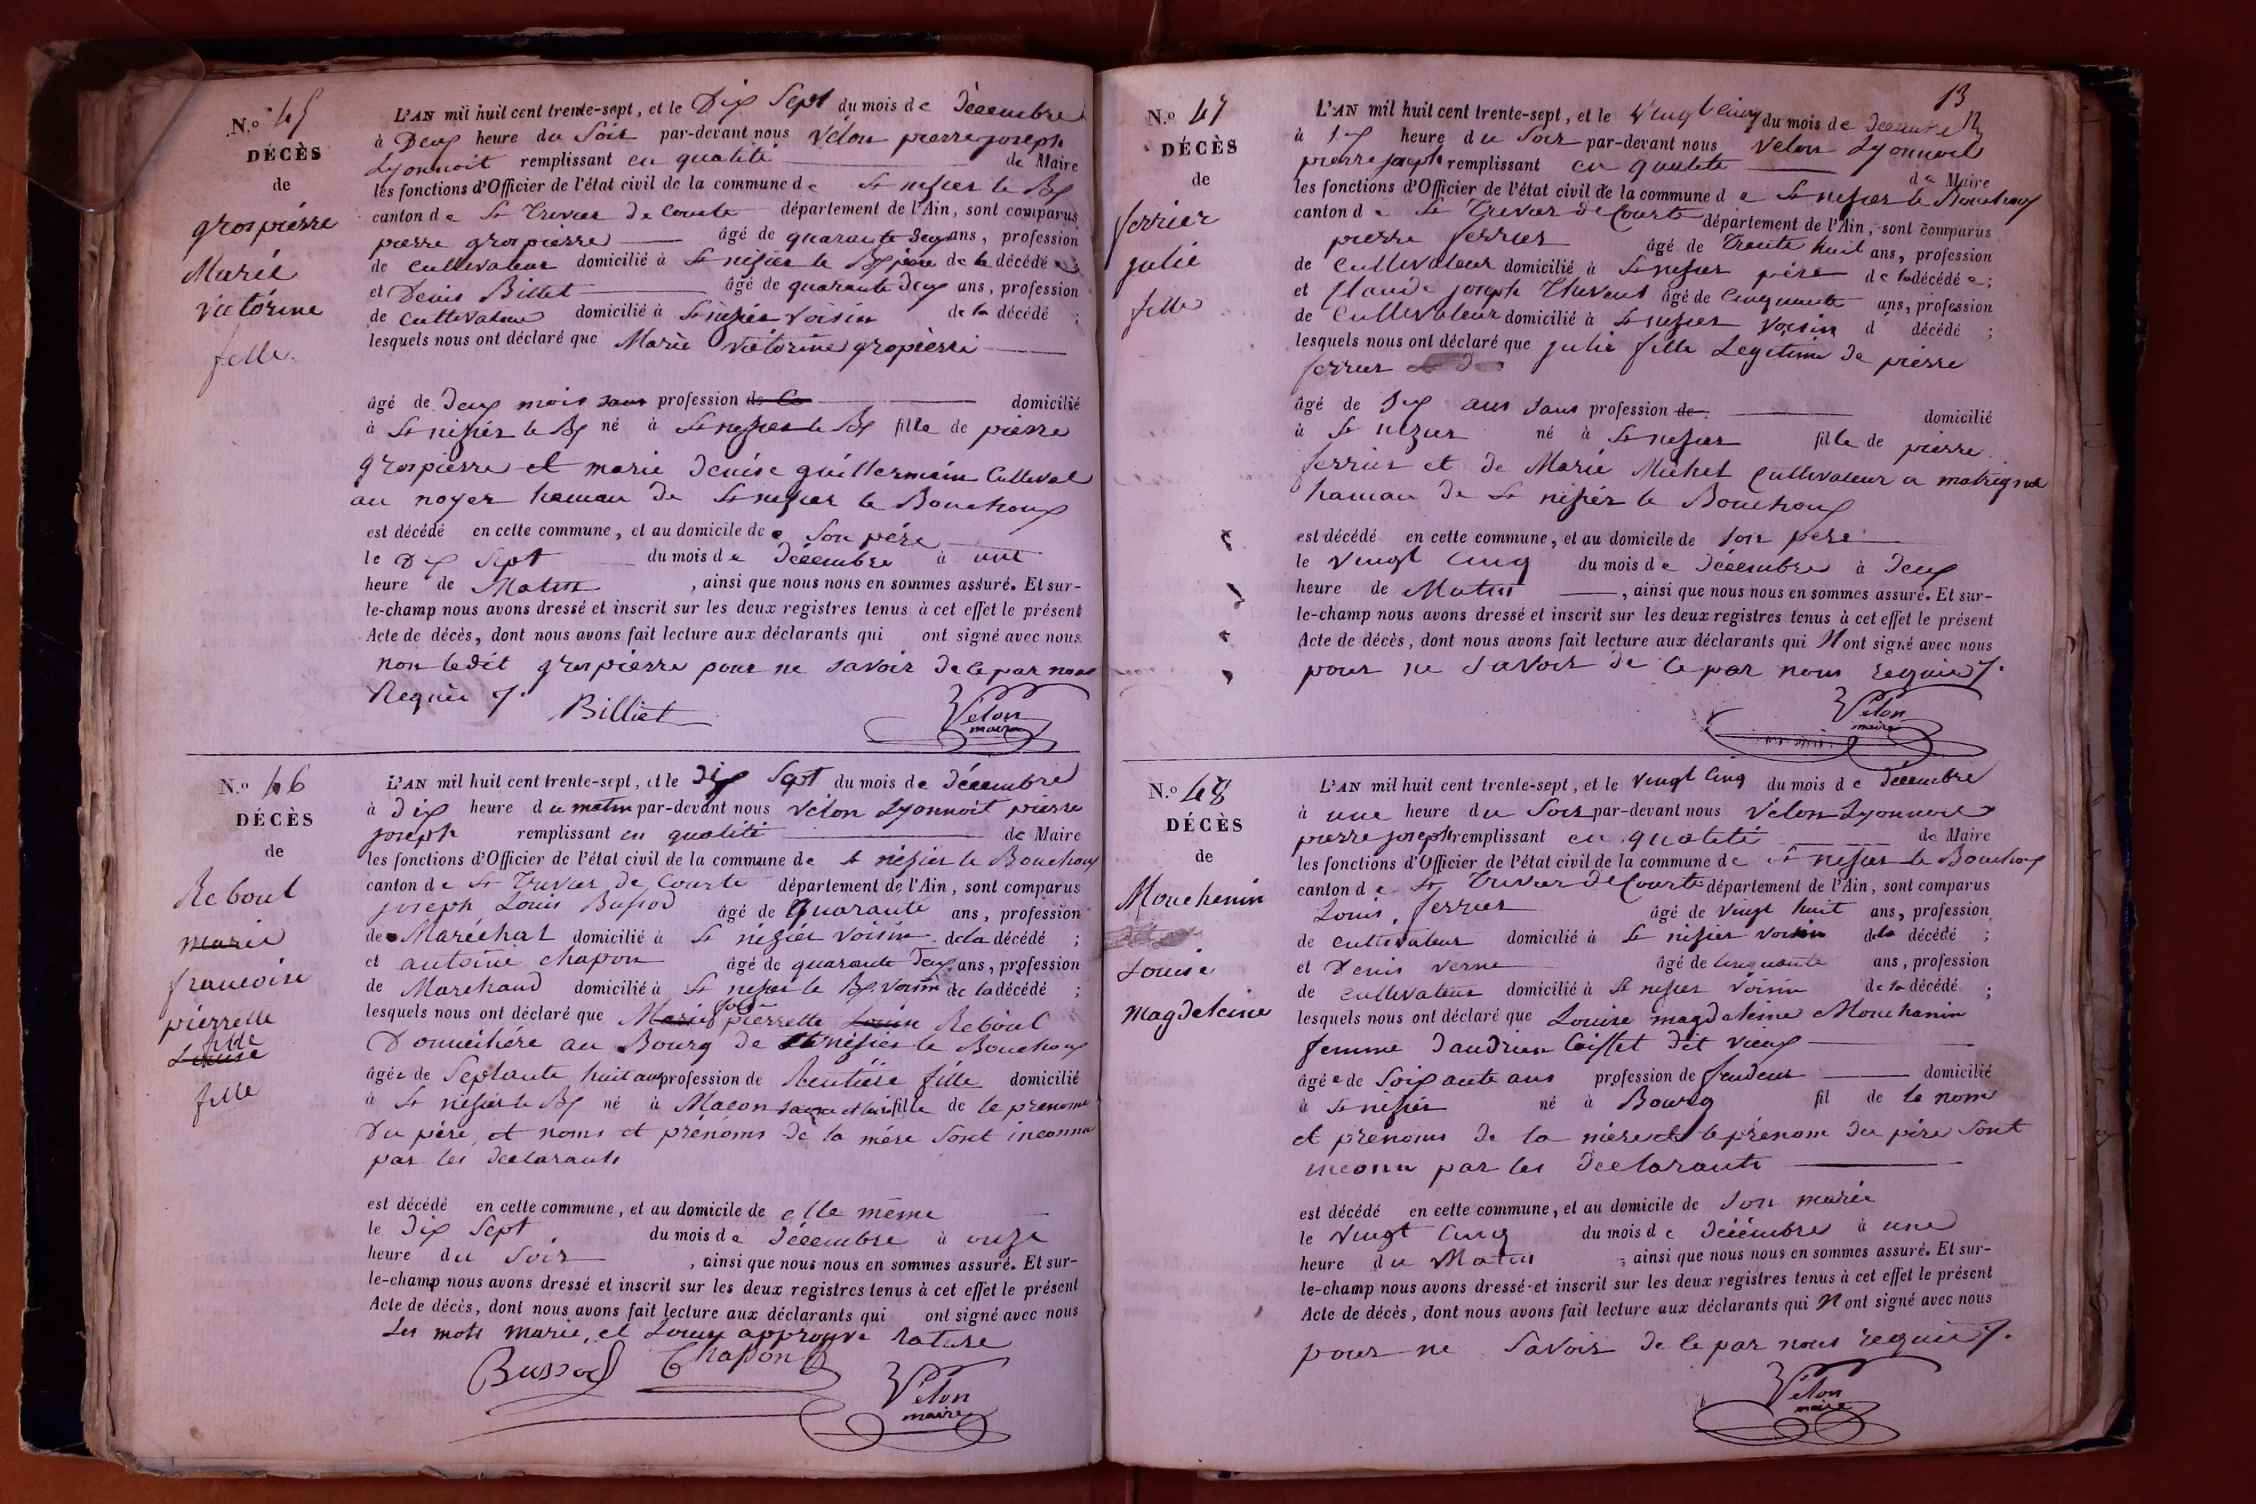 N.o 45
DÉCÈS
de
grospierre
Marié
victorine
fille.
L'AN mil huit cent trente-sept, et le Dix Sept du mois de Décembre
à Deux heure du Soir par-devant nous Velon pierre joseph
Lyonnoit remplissant en qualité de Maire
les fonctions d'Officier de l'état civil de la commune de St nisier le Bx
canton de St Trivier De Courte département de l'Ain, sont comparus
pierre grospierre âgé de quarante Deux ans, profession
de Cultivateur domicilié à St nisier le Bx père de la décédé
et Denis Billet âgé de quarante Deux ans, profession
de Cultivateur domicilié à St nisier voisin de la décédé ;
lesquels nous ont déclaré que Marie victorine gropierre
âgé de Deux mois sans profession de domicilié
à St nisier le Bx né à St nisier le Bx fille de pierre
grospierre et marie Denise guillermin Cultivat
au noyer hamau De St nisier le Bouchoux
est décédé en cette commune, et au domicile de Son père
le Dix Sept du mois de Décembre à une
heure de Matin , ainsi que nous nous en sommes assuré. Et sur-
le-champ nous avons dressé et inscrit sur les deux registres tenus à cet effet le présent
Acte de décès, dont nous avons fait lecture aux déclarants qui ont signé avec nous
non ledit grospierre pour ne savoir de ce par nous
Requie
Billiet Velon
maire
N.o 46
DÉCÈS
de
Reboul
marie
francoise
pierrette
Louise
fille
L'AN mil huit cent trente-sept, et le Dix Sept du mois de Décembre
à Dix heure du matin par-devant nous Velon Lyonnoit pierre
joseph remplissant en qualité de Maire
les fonctions d'Officier de l'état civil de la commune de St nisier le Bouchoux
canton de St Trivier De Courte département de l'Ain, sont comparus
joseph Louis Bussod âgé de Quarante ans, profession
de Maréchal domicilié à St nizier voisin de la décédé ;
et antoine chapon âgé de quarante Deux ans, profession
de Marchand domicilié à St nisier le Bx voisin de la décédé ;
lesquels nous ont déclaré que Marie pierrette Reboul
Domicilière au Bourg de St nisier le Bouchoux
âgée de Septante huit ans profession de Rentière fille domicilié
à St nisier le Bx né à Macon fille de le prenome
Du père, et noms et prénoms De la mére Sont inconnu
par les declarants
est décédé en cette commune, et au domicile de elle même
le Dix Sept du mois de Décembre à onze
heure du Soir , ainsi que nous nous en sommes assuré. Et sur-
le-champ nous avons dressé et inscrit sur les deux registres tenus à cet effet le présent
Acte de décès, dont nous avons fait lecture aux déclarants qui ont signé avec nous
Les mots marie, et Louise approuve rature
Bussod Chapon Velon
maire
13
N.o 47
DÉCÈS
de
ferrier
julie
fille
L'AN mil huit cent trente-sept, et le Vingt Cinq du mois de Décembre
à Six heure du Soir par-devant nous Velon Lyonnoit
pierre joseph remplissant en qualite de Maire
les fonctions d'Officier de l'état civil de la commune de St nisier le Bouchoux
canton de St Trivier De Courte département de l'Ain, sont comparus
pierre ferrier âgé de Trente huit ans, profession
de Cultivateur domicilié à St nisier père de la décédée ;
et Claude joseph Thevent âgé de Cinquante ans, profession
de Cultivateur domicilié à St nisier voisin d décédé ;
lesquels nous ont déclaré que julie fille Legitime de pierre
ferrier
âgé de Six ans sans profession de domicilié
à St nizier né à St nisier fille de pierre
ferrier et de Marie Michel Cultivateur a
hamau de St nisier le Bouchoux
est décédé en cette commune, et au domicile de Son père
le Vingt Cinq du mois de Décembre à Deux
heure de Matin , ainsi que nous nous en sommes assuré. Et sur-
le-champ nous avons dressé et inscrit sur les deux registres tenus à cet effet le présent
Acte de décès, dont nous avons fait lecture aux déclarants qui N ont signé avec nous
pour ne Savoir de ce par nous requie
Velon
maire
N.o 48
DÉCÈS
de
Mouchenin
Louise
magdeleine
L'AN mil huit cent trente-sept, et le Vingt Cinq du mois de Décembre
à une heure du Soir par-devant nous Vélon Lyonnoit
pierre joseph remplissant en qualité de Maire
les fonctions d'Officier de l'état civil de la commune de St nisier le Bouchoux
canton de St Trivier De Courte département de l'Ain, sont comparus
Louis ferrier âgé de Vingt huit ans, profession
de cultivateur domicilié à St nisier voisin de la décédé ;
et Denis verne âgé de Cinquante ans, profession
de cultivateur domicilié à St nisier voisin de la décédé ;
lesquels nous ont déclaré que Louise magdeleine Mouchanin
femme Dandrien Coissat Dit vieux
âgée de Soixante ans profession de fendeur domicilié
à St nisier né à Bourg fil de le nom
et prenoms De la mère et le prénom du père Sont
inconnu par les Declarants
est décédé en cette commune, et au domicile de Son marié
le Vingt Cinq du mois de Décembre à une
heure du Matin , ainsi que nous nous en sommes assuré. Et sur-
le-champ nous avons dressé et inscrit sur les deux registres tenus à cet effet le présent
Acte de décès, dont nous avons fait lecture aux déclarants qui N ont signé avec nous
pour ne Savoir De ce par nous requie
Velon
maire